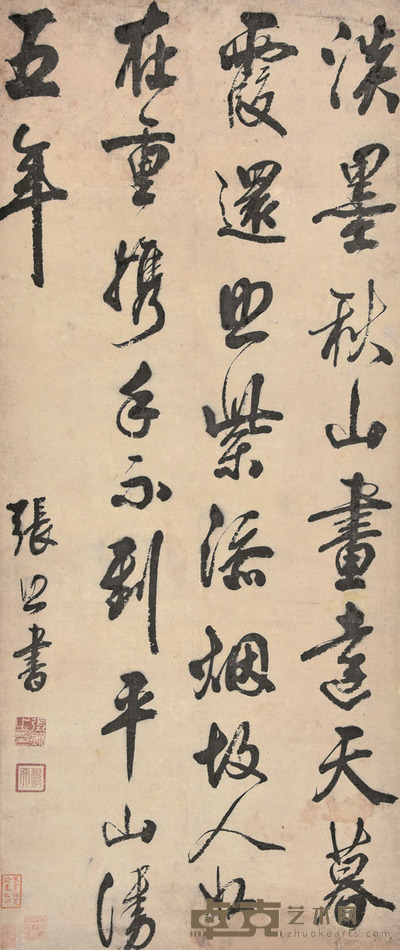 淡墨秋山畫遠天暮
霞還照紫添烟故人好
在重携手不到平山謾
五年
張照書
艺术网
zhuokearts.com